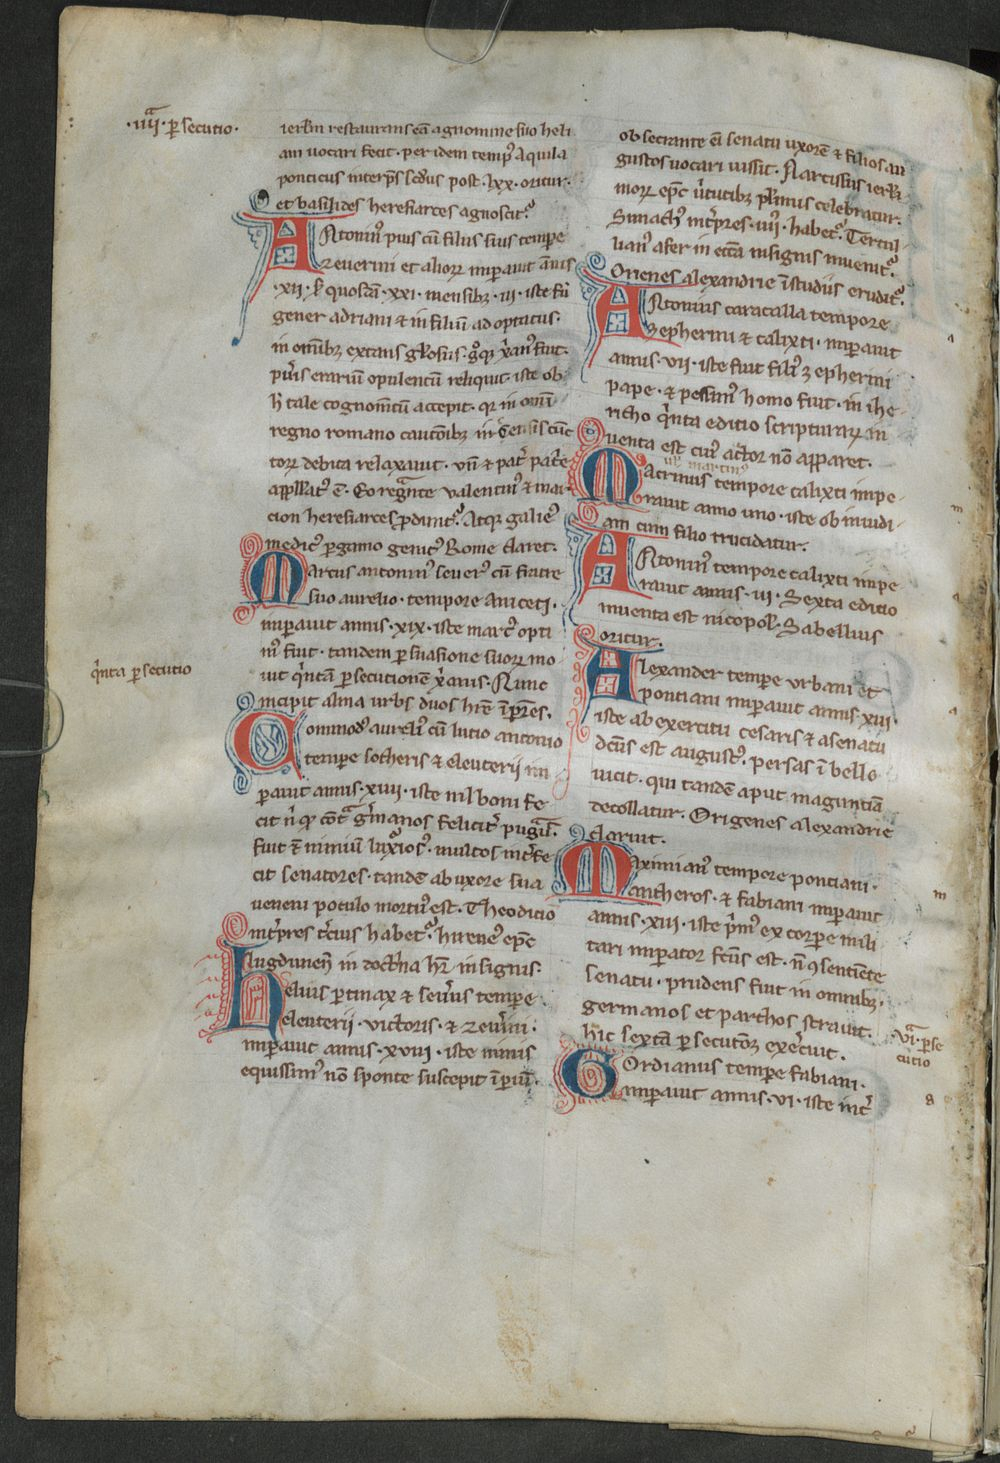 ·iiiia· ꝑsecutio·
ierlm̄ restaurans eā agnomine suo heli
am uocari fecit · per idem tempꝰ Aquila
ponticus interp̄s scd̄us post ·lxx· oritur·
et basilides heresiarces agnoscit᷑
Antoninꝰ pius cū filiis suis tempore
zeuerini et alioꝝ imperauit annis
·xii· ł quosdā ·xxi· mensibꝫ ·iii· iste fū
gener adriani et in filiū adoptatus·
in omībꝫ extans gl̄osus ꝰ xānꝰ fuit·
erariū opulentū reliquit· iste ob
h̄ tale cognom̄tū accepit· qr̄ in omī
regno romano cautōnibꝫ incensis cūc
torꝝ debita relaxauit· vn̄ et pat̄ pat̄e
appllatꝰ ē· Eo regnāte valentinꝰ et mar
cion heresiarces ꝓdūnt᷑· Atque galienꝰ
medicꝰ ꝑgamo genitꝰ Rome claret·
Marcus antoninꝰ seuerꝰ cū fratre
suo aurelio · tempore Aniceti·
imꝑauit annis ·xix· iste marcꝰ opti
mꝰ fuit · tandem ꝑsuasione suoꝝ mo
uit qͥntā ꝑsecutionē xānis· Nunc
qͥnta ꝑsecutio
incipit alma urbs duos hr̄e īꝑr̄es·
Commodꝰ aureliꝰ cū lucio antonio
tempore sotheris et eleuterii im
ꝑauit annis ·xiiii· iste nil boni fe
cit n̄ qꝫ cont̄a gm̄anos feliciter pugᷓ·
fuit et nimiū luxᷓiosꝰ· multos inter̄fe
cit senatores· tandē ab uxore sua
ueneni potulo mortuꝰ est· Theodicio
inter̄pres tercius habet᷑· hireneꝰ epc̄
lugdunen̄ in doctᷓna hr̄ insignis·
Heluis ꝑtinax et seuerus tempore
eleuterii · victoris · et zeuerini ·
imꝑauit annis ·xviii· iste nimis
equissimꝰ non sponte suscepit īꝑiū·
obsecrante eī senatu uxorē et filios au
gustos uocari iussit· Narcissus ierlꝫi
moꝝ epc̄ uirtutibꝫ plꝛimus celebratur·
Simachꝰ interpres ·iiii· habet᷑· Tertul
lianꝰ afer in eccā insignis inuenit᷑·
Orienes alexandrie ī studiis erudit᷑·
Antonius caracalla tempore
zepherini et calixti · imperauit
annis ·vii· iste fuit filiꝰ zepherini
pape · et pessimꝰ homo fuit · in ihe
richo qͥnta editio scripturaꝝ in
uenta est cuiꝰ actor nō apparet·
Macrinus tempore calixti impe
rauit anno uno · iste ob inuidi
am cum filio trucidatur·
Antoninꝰ tempore calixti impe
rauit annis ·iii· Sexta editio
inuenta est nicopol̄· Sabellius
oritur·
Alexander tempore urbani et
pontiani imperauit annis ·xiii·
iste ab exercitu cesaris et a senatu
dc̄us est augustꝰ· persas ī bello
uicit· qui tandē aput maguntiā
decollatur· Origenes alexandrie
claruit·
Maximianꝰ tempore pontiani·
antheros · et fabiani imꝑauit
annis ·xiii· iste pͥmꝰ ex corpore mili
tari imperator fcūs est · nō ꝯsentiēte
senatu · prudens fuit in omnibꝫ·
germanos et parthos strauit·
hic sextā ꝑsecutōꝫ exercuit·
·via· ꝑse
cutio
Gordianus tempore fabiani·
imꝑauit annis ·vi· iste int̄